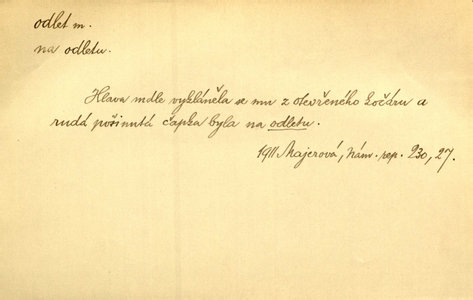 odlet m.
na odletu.
Hlava mdle vykláněla se mu z otevřeného kočáru a
rudá pošinutá čapka byla na odletu.
1911 Majerová, Nám. rep. 230, 27.